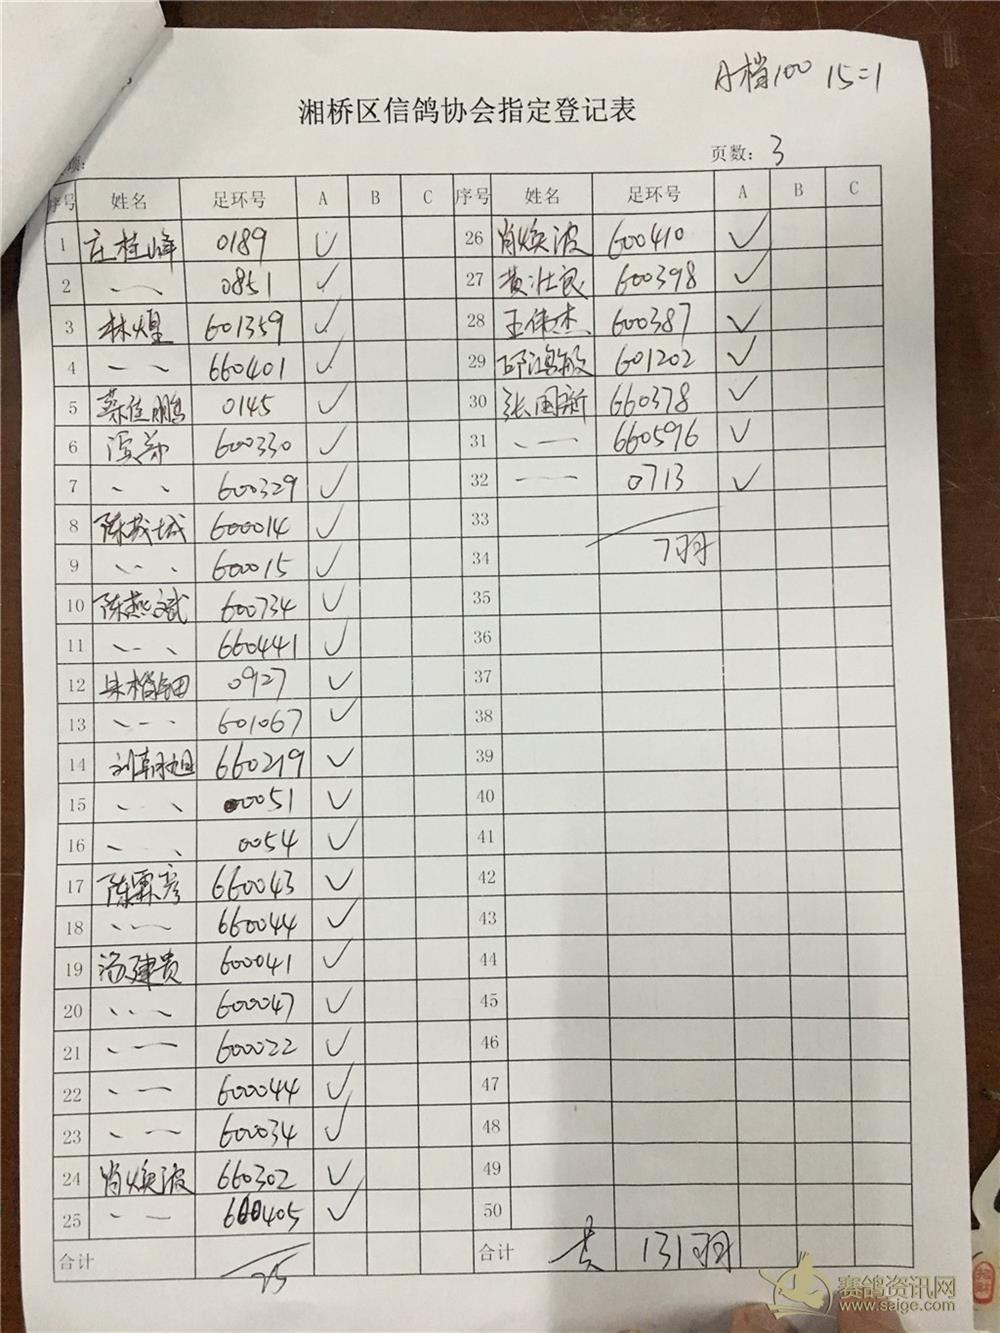 A档100 15=1
湘桥区信鸽协会指定登记表
项:
页数: 3
序号 姓名 足环号 A B C 序号 姓名 足环号 A B C
1 庄桂峰 0189 ✓ 26 肖焕波 600410 ✓
2 、一 0851 ✓ 27 黄壮良 600398 ✓
3 林煌 601359 ✓ 28 王伟杰 600387 ✓
4 、一 660401 ✓ 29 邱鸿敏 601202 ✓
5 蔡佳鹏 0145 ✓ 30 张国新 660378 ✓
6 600330 ✓ 31 、一 660596 ✓
7 、、 600329 ✓ 32 、一 0713 ✓
8 陈成城 600014 ✓ 33
9 、、、 600015 ✓ 34 7羽
10 陈燕斌 600734 ✓ 35
11 、、、 660441 ✓ 36
12 0927 ✓ 37
13 、一、 601067 ✓ 38
14 刘朝旭 660219 ✓ 39
15 、、 0051 ✓ 40
16 、、 0054 ✓ 41
17 陈霖彦 660043 ✓ 42
18 、一 660044 ✓ 43
19 汤建贵 600041 ✓ 44
20 、、、 600047 ✓ 45
21 、一 600022 ✓ 46
22 、一 600044 ✓ 47
23 、一 600034 ✓ 48
24 肖焕波 660302 ✓ 49
25 、一 600405 ✓ 50
合计 25 合计 共 131羽
赛鸽资讯网
www.saige.com